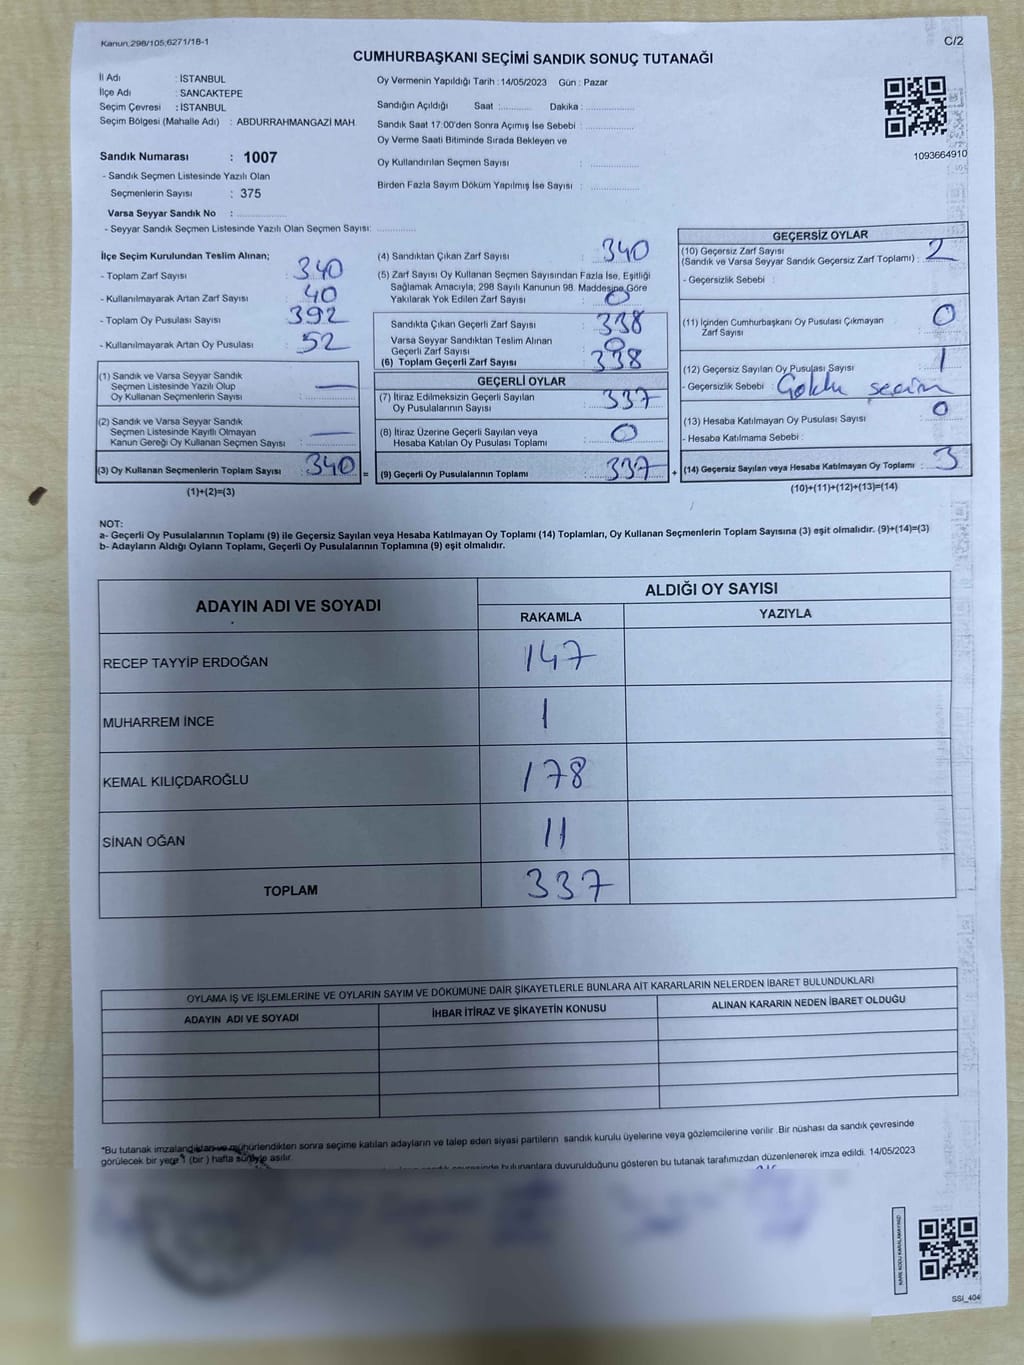 Kanun,298/105,6271/18-1
C/2
CUMHURBAŞKANI SEÇİMİ SANDIK SONUÇ TUTANAĞI
İl Adı : İSTANBUL
İlçe Adı : SANCAKTEPE
Seçim Çevresi : İSTANBUL
Seçim Bölgesi (Mahalle Adı) : ABDURRAHMANGAZİ MAH.
Sandık Numarası : 1007
- Sandık Seçmen Listesinde Yazılı Olan
Seçmenlerin Sayısı : 375
Varsa Seyyar Sandık No : ..............
- Seyyar Sandık Seçmen Listesinde Yazılı Olan Seçmen Sayısı: ............
Oy Vermenin Yapıldığı Tarih : 14/05/2023 Gün : Pazar
Sandığın Açıldığı Saat :.......... Dakika : ...............
Sandık Saat 17:00'den Sonra Açımış İse Sebebi : ...............
Oy Verme Saati Bitiminde Sırada Bekleyen ve
Oy Kullandırılan Seçmen Sayısı : ...............
Birden Fazla Sayım Döküm Yapılmış İse Sayısı : ...............
1093664910
İlçe Seçim Kurulundan Teslim Alınan;
- Toplam Zarf Sayısı : 340
- Kullanılmayarak Artan Zarf Sayısı : 40
- Toplam Oy Pusulası Sayısı : 392
- Kullanılmayarak Artan Oy Pusulası : 52
(1) Sandık ve Varsa Seyyar Sandık
Seçmen Listesinde Yazılı Olup
Oy Kullanan Seçmenlerin Sayısı : —
(2) Sandık ve Varsa Seyyar Sandık
Seçmen Listesinde Kayıtlı Olmayan
Kanun Gereği Oy Kullanan Seçmen Sayısı : —
(3) Oy Kullanan Seçmenlerin Toplam Sayısı : 340 =
(1)+(2)=(3)
(4) Sandıktan Çıkan Zarf Sayısı : 340
(5) Zarf Sayısı Oy Kullanan Seçmen Sayısından Fazla İse, Eşitliği
Sağlamak Amacıyla; 298 Sayılı Kanunun 98. Maddesine Göre
Yakılarak Yok Edilen Zarf Sayısı : 0
Sandıkta Çıkan Geçerli Zarf Sayısı : 338
Varsa Seyyar Sandıktan Teslim Alınan
Geçerli Zarf Sayısı : 0
(6) Toplam Geçerli Zarf Sayısı : 338
GEÇERLİ OYLAR
(7) İtiraz Edilmeksizin Geçerli Sayılan
Oy Pusulalarının Sayısı : 337
(8) İtiraz Üzerine Geçerli Sayılan veya
Hesaba Katılan Oy Pusulası Toplamı : 0
(9) Geçerli Oy Pusulalarının Toplamı : 337 +
GEÇERSİZ OYLAR
(10) Geçersiz Zarf Sayısı
(Sandık ve Varsa Seyyar Sandık Geçersiz Zarf Toplamı) : 2
- Geçersizlik Sebebi :
(11) İçinden Cumhurbaşkanı Oy Pusulası Çıkmayan
Zarf Sayısı : 0
(12) Geçersiz Sayılan Oy Pusulası Sayısı : 1
- Geçersizlik Sebebi : seçim
(13) Hesaba Katılmayan Oy Pusulası Sayısı : 0
- Hesaba Katılmama Sebebi :
(14) Geçersiz Sayılan veya Hesaba Katılmayan Oy Toplamı : 3
(10)+(11)+(12)+(13)=(14)
NOT:
a- Geçerli Oy Pusulalarının Toplamı (9) ile Geçersiz Sayılan veya Hesaba Katılmayan Oy Toplamı (14) Toplamları, Oy Kullanan Seçmenlerin Toplam Sayısına (3) eşit olmalıdır. (9)+(14)=(3)
b- Adayların Aldığı Oyların Toplamı, Geçerli Oy Pusulalarının Toplamına (9) eşit olmalıdır.
ADAYIN ADI VE SOYADI
ALDIĞI OY SAYISI
RAKAMLA YAZIYLA
RECEP TAYYİP ERDOĞAN 147
MUHARREM İNCE 1
KEMAL KILIÇDAROĞLU 178
SİNAN OĞAN 11
TOPLAM 337
OYLAMA İŞ VE İŞLEMLERİNE VE OYLARIN SAYIM VE DÖKÜMÜNE DAİR ŞİKAYETLERLE BUNLARA AİT KARARLARIN NELERDEN İBARET BULUNDUKLARI
ADAYIN ADI VE SOYADI İHBAR İTİRAZ VE ŞİKAYETİN KONUSU ALINAN KARARIN NEDEN İBARET OLDUĞU
*Bu tutanak imzalandıktan ve mühürlendikten sonra seçime katılan adayların ve talep eden siyasi partilerin sandık kurulu üyelerine veya gözlemcilerine verilir .Bir nüshası da sandık çevresinde
görülecek bir yere 1 (bir ) hafta süreyle asılır.
bulunanlara duyurulduğunu gösteren bu tutanak tarafımızdan düzenlenerek imza edildi. 14/05/2023
KARE KODU KARALAMAYINIZ!
SSİ_404